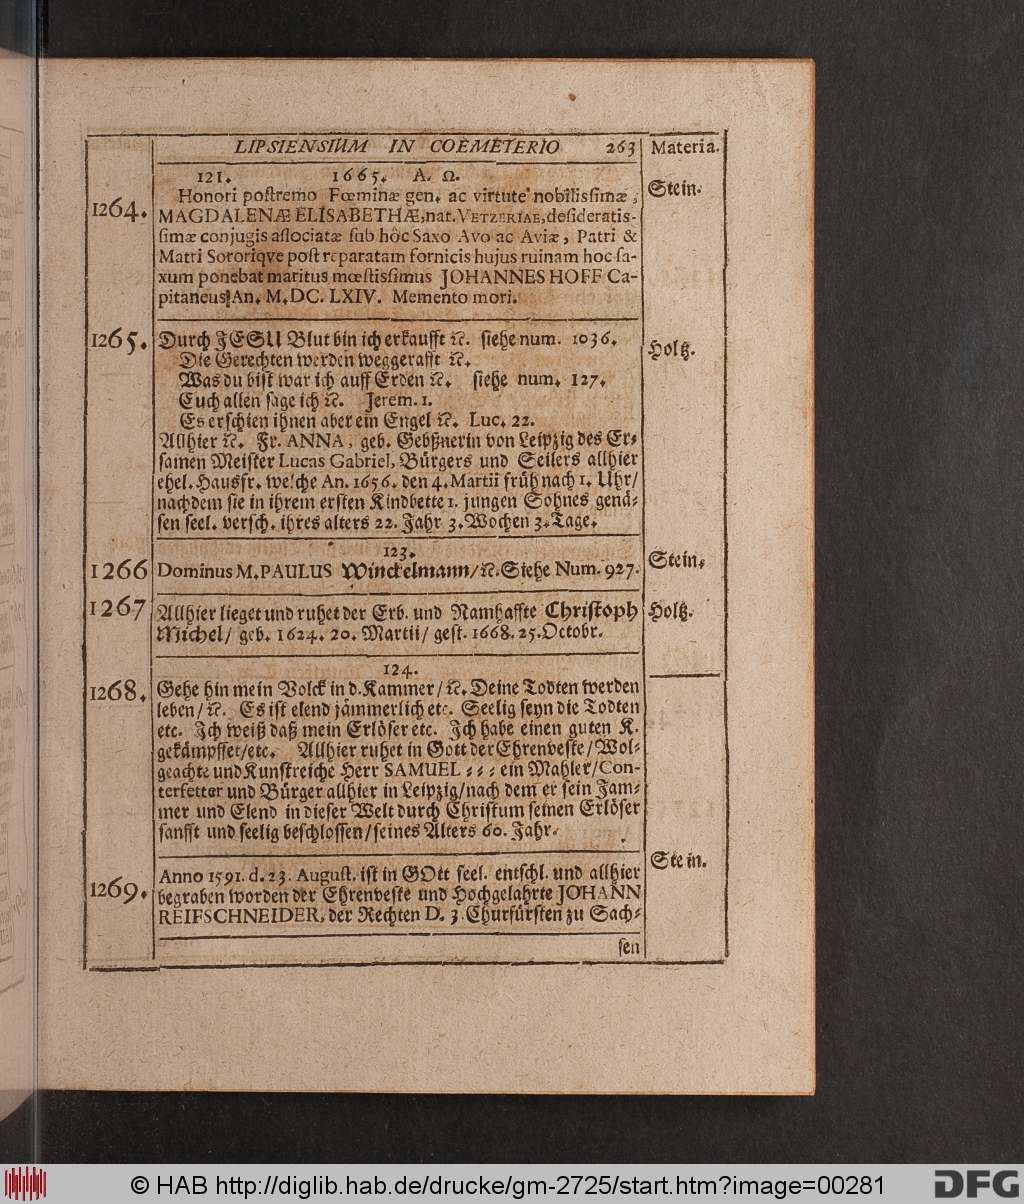 LIPSIENSIUM IN COEMETERIO 263 Materia.
121. 1665. A. Ω.
1264. Honori postremo Fœminæ gen. ac virtute nobilissimæ, Stein.
MAGDALENÆ ELISABETHÆ, nat. VETZERIAE, desideratis-
simæ conjugis associatæ sub hôc Saxo Avo ac Aviæ, Patri &
Matri Sororiqve post reparatam fornicis hujus ruinam hoc sa-
xum ponebat maritus mœstissimus JOHANNES HOFF Ca-
pitaneus An. M.DC. LXIV. Memento mori.
1265. Durch JESU Blut bin ich erkaufft ꝛc. siehe num. 1036. Holtz.
Die Gerechten werden weggerafft ꝛc.
Was du bist war ich auff Erden ꝛc. siehe num. 127.
Euch allen sage ich ꝛc. Jerem. 1.
Es erschien ihnen aber ein Engel ꝛc. Luc. 22.
Allhier ꝛc. Fr. ANNA, geb. Gebßnerin von Leipzig des Er-
samen Meister Lucas Gabriel, Bürgers und Seilers allhier
ehel. Hausfr. welche An. 1656. den 4. Martii früh nach 1. Uhr/
nachdem sie in ihrem ersten Kindbette 1. jungen Sohnes genä-
sen seel. versch. ihres alters 22. Jahr 3. Wochen 3. Tage.
123.
1266 Dominus M. PAULUS Winckelmann/ ꝛc. Siehe Num. 927. Stein.
1267 Allhier lieget und ruhet der Erb. und Namhaffte Christoph Holtz.
Michel/ geb. 1624. 20. Martii/ gest. 1668. 25. Octobr.
124.
1268. Gehe hin mein Volck in d. Kammer/ ꝛc. Deine Todten werden
leben/ ꝛc. Es ist elend jämmerlich etc. Seelig seyn die Todten
etc. Ich weiß daß mein Erlöser etc. Ich habe einen guten K.
gekämpffet/etc. Allhier ruhet in Gott der Ehrenveste/ Wol-
geachte und Kunstreiche Herr SAMUEL - - - ein Mahler/ Con-
terfetter und Bürger allhier in Leipzig/ nach dem er sein Jam-
mer und Elend in dieser Welt durch Christum seinen Erlöser
sanfft und seelig beschlossen/ seines Alters 60. Jahr.
1269. Anno 1591. d. 23. August. ist in GOtt seel. entschl. und allhier Stein.
begraben worden der Ehrenveste und Hochgelahrte JOHANN
REIFSCHNEIDER, der Rechten D. 3. Churfürsten zu Sach-
sen
© HAB http://diglib.hab.de/drucke/gm-2725/start.htm?image=00281 DFG